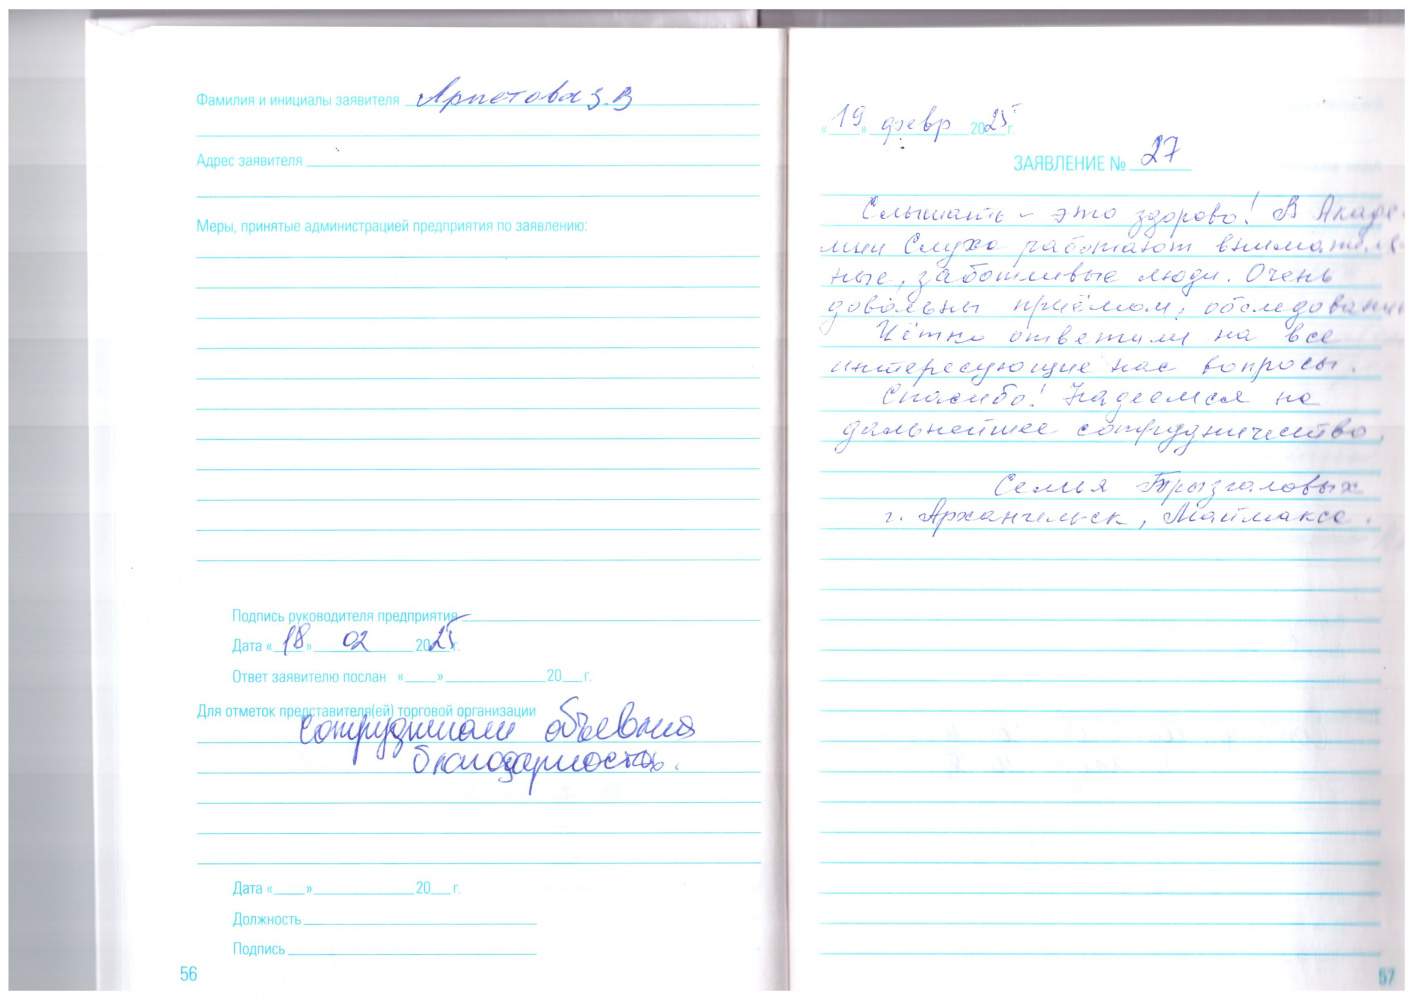 Фамилия и инициалы заявителя Арпетова З.В
Адрес заявителя
Меры, принятые администрацией предприятия по заявлению:
Подпись руководителя предприятия
Дата «18» 02 2025 г.
Ответ заявителю послан «___» 20__ г.
Для отметок представителя(ей) торговой организации
Сотрудникам объевлена
благодарность.
Дата «___» 20__ г.
Должность
Подпись
56
«19» февр 2025 г.
ЗАЯВЛЕНИЕ № 27
Слышать - это здорово! В Акаде-
мии Слуха работают вниматель-
ные, заботливые люди. Очень
довольны приёмом, обследованием
Чётко ответили на все
интересующие нас вопросы.
Спасибо! Надеемся на
дальнейшее сотрудничество.
Семья Брызгаловых
г. Архангельск, Маймакса.
57